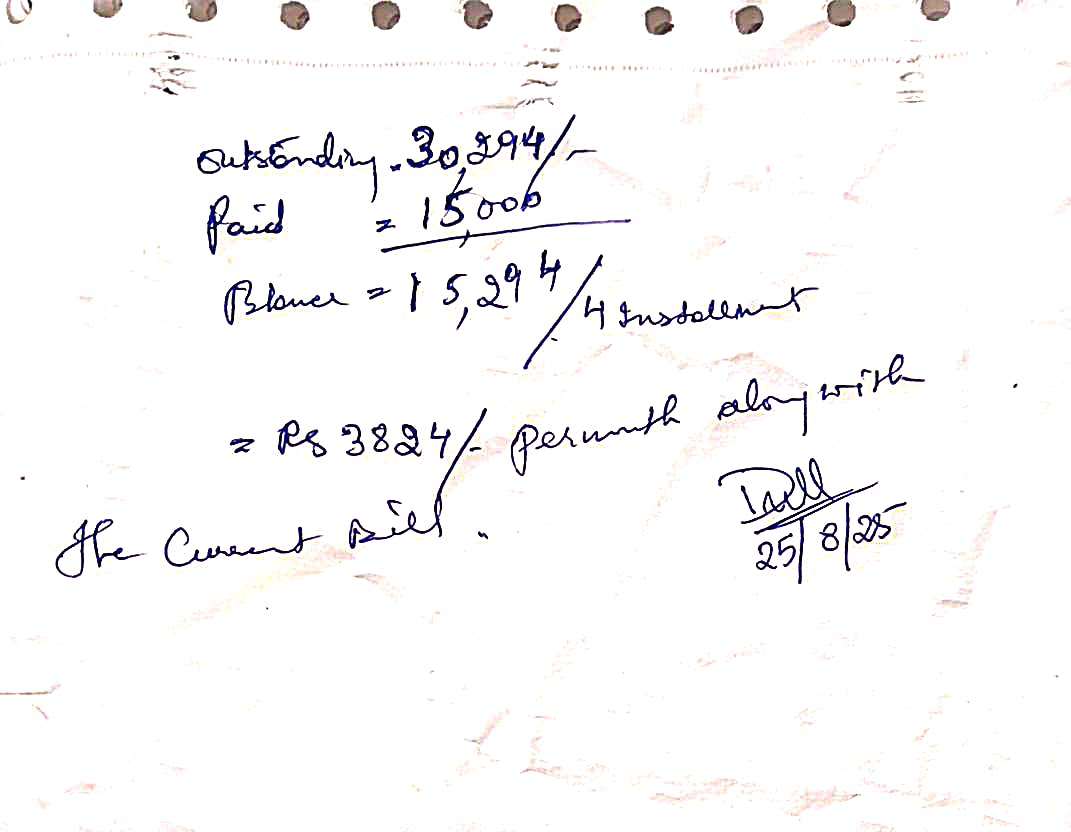 Outstanding. 30,294/-
Paid = 15,000
Balance = 15,294/4 Installment
= Rs 3824/- per month along with
The Current Bill.
25/8/25